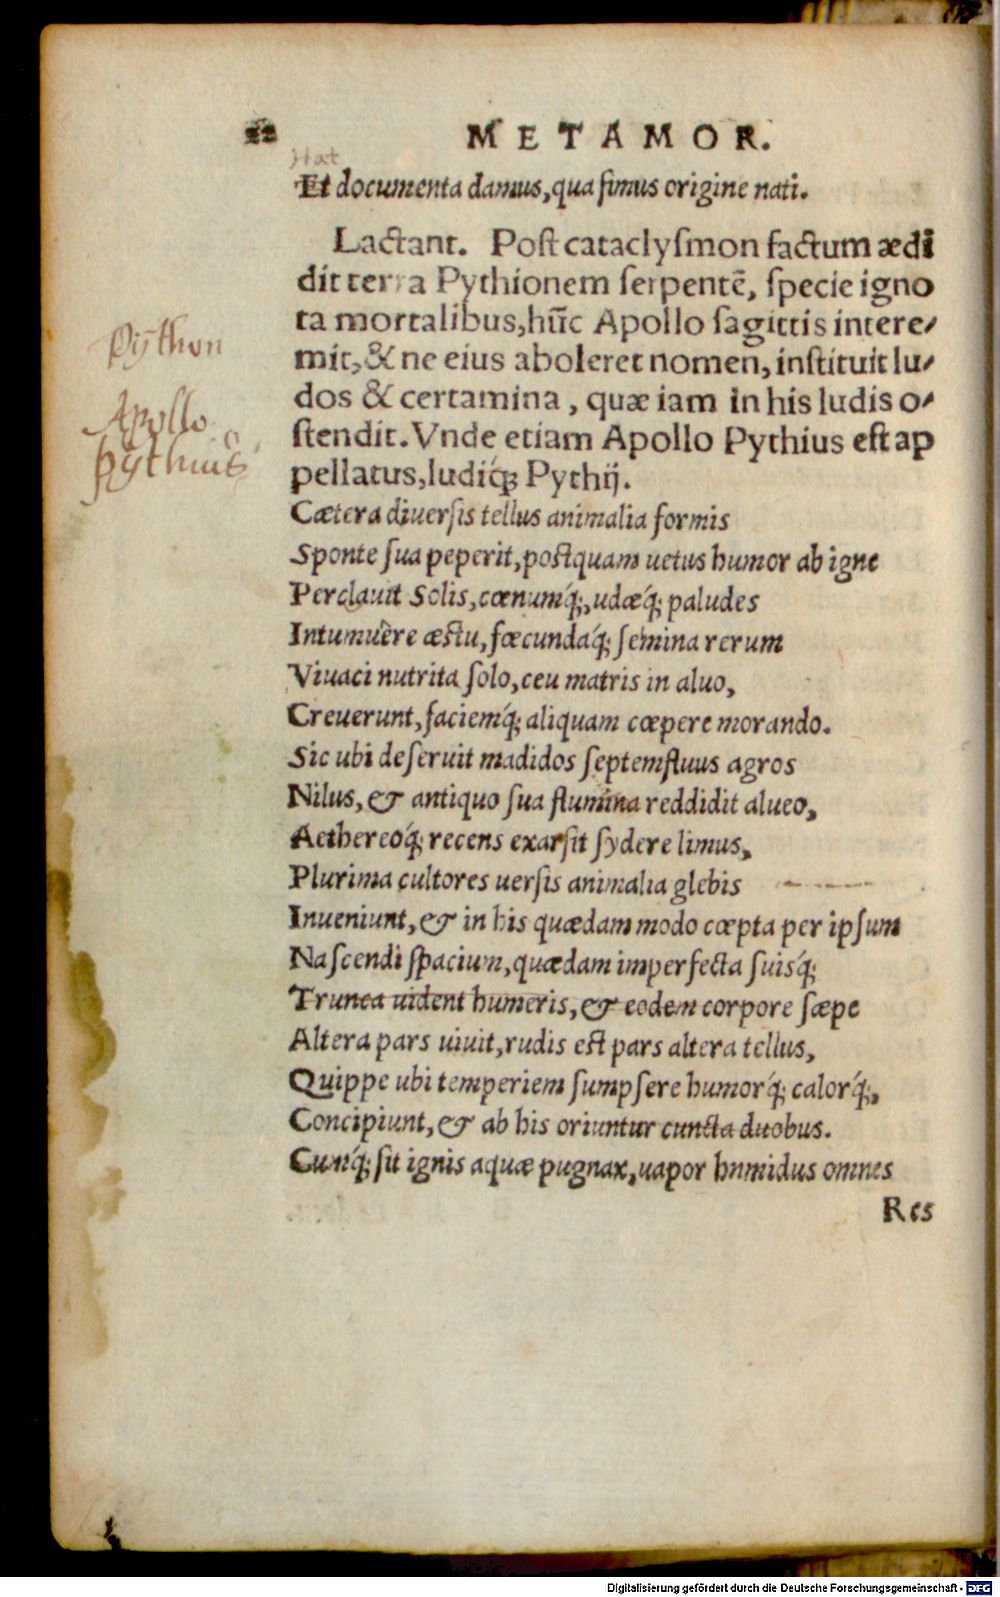 22 METAMOR.
Et documenta damus,qua ſimus origine nati.
Lactant. Poſt cataclyſmon factum ædi
dit terra Pythionem ſerpentē, ſpecie igno
ta mortalibus,hūc Apollo ſagittis intere/
mit,& ne eius aboleret nomen, inſtituit lu/
dos & certamina, quæ iam in his ludis o/
ſtendit. Vnde etiam Apollo Pythius eſt ap
pellatus,ludiq́; Pythij.
Python
Apollo
pythius
Cætera diuerſis tellus animalia formis
Sponte ſua peperit,poſtquam uetus humor ab igne
Perclauit Solis,cœnumq́;,udæq́; paludes
Intumuêre æſtu, fœcundaq́; ſemina rerum
Viuaci nutrita ſolo,ceu matris in aluo,
Creuerunt,faciemq́; aliquam cœpere morando.
Sic ubi deſeruit madidos ſeptemfluus agros
Nilus, & antiquo ſua flumina reddidit alueo,
Aethereoq́; recens exarſit ſydere limus,
Plurima cultores uerſis animalia glebis
Inueniunt, & in his quædam modo cœpta per ipſum
Naſcendi ſpacium,quædam imperfecta ſuisq́;
Trunca uident humeris, & eodem corpore ſæpe
Altera pars uiuit,rudis eſt pars altera tellus,
Quippe ubi temperiem ſumpſere humorq́; calorq́;,
Concipiunt, & ab his oriuntur cuncta duobus.
Cunq́; ſit ignis aquæ pugnax,uapor hnmidus omnes
Res
Digitalisierung gefördert durch die Deutsche Forschungsgemeinschaft - DFG